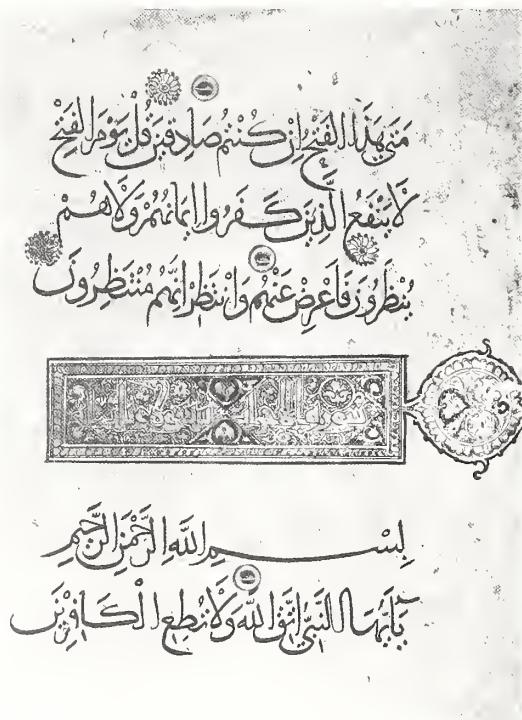 مَتَى هَذَا الفَتْحُ اِنْ كُنْتُمْ صَادِقِينَ قُلْ يَوْمَ الفَتْحِ
لَا يَنْفَعُ الَّذِينَ كَفَرُوا اِيمَانُهُمْ وَلَا هُمْ
يُنْظَرُونَ فَاَعْرِضْ عَنْهُمْ وَانْتَظِرْ اِنَّهُمْ مُنْتَظِرُونَ
سورة
بِسْمِ اللَّهِ الرَّحْمَنِ الرَّحِيمِ
يَاَيُّهَا النَّبِيُّ اتَّقِ اللَّهَ وَلَا تُطِعِ الْكَافِرِينَ